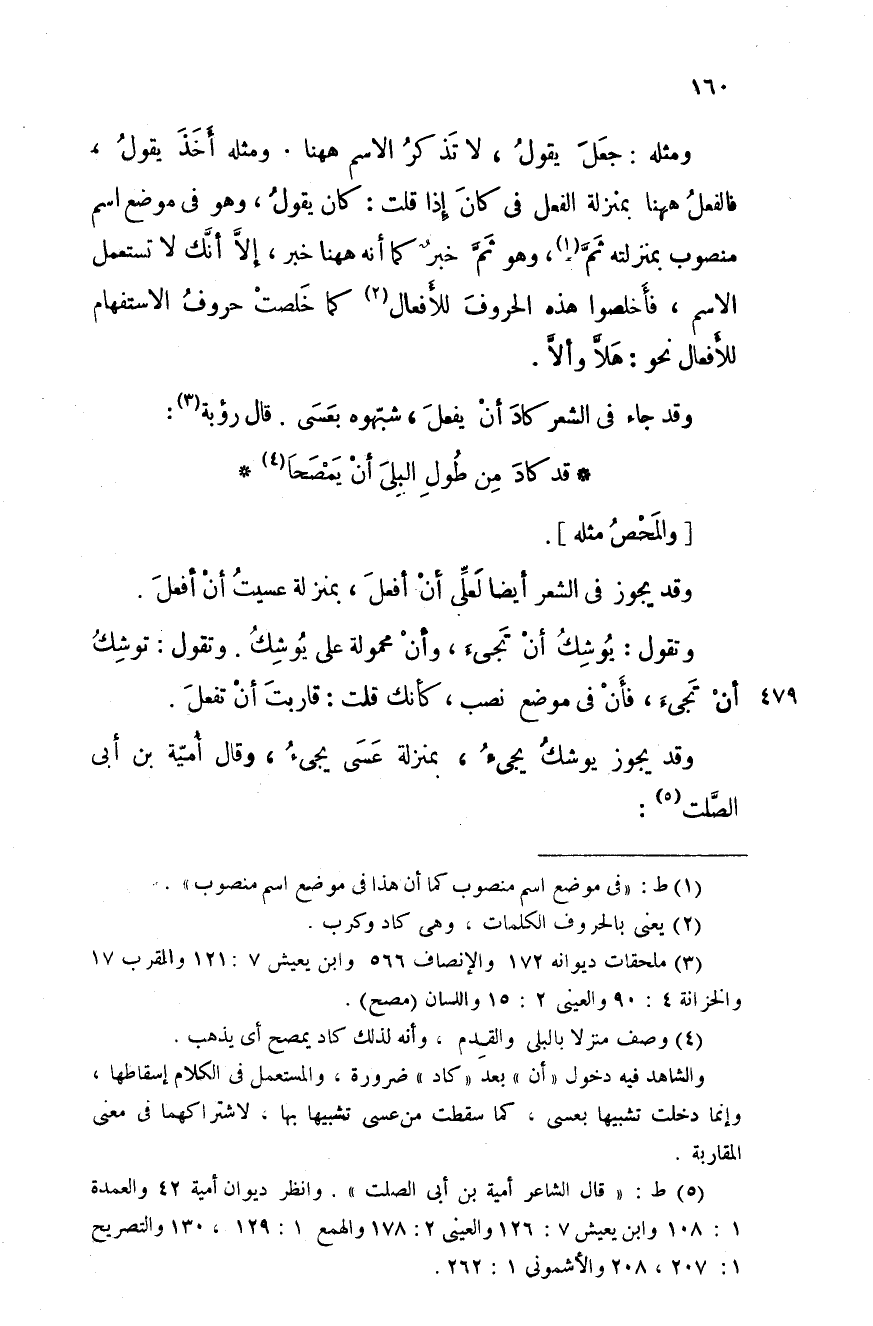 ١٦٠
ومثله : جعَلَ يقولُ ، لا تَذكرُ الاسم ههنا . ومثله أَخَذَ يقولُ ،
فالفعلُ ههنا بمنزلة الفعل فى كانَ إِذا قلت : كان يقولُ ، وهو فى موضع اسم
منصوب بمنزلته ثَمَّ(١)، وهو ثَمَّ خبرٌ كما أنه ههنا خبر ، إلاَّ أنَّك لا تستعمل
الاسم ، فأَخلصوا هذه الحروفَ للأَفعال(٢) كما خَلصتْ حروفُ الاستفهام
للأَفعال نحو : هَلاَّ وألاَّ .
وقد جاء فى الشعر كادَ أنْ يفعلَ ، شبّهوه بعَسَى . قال رؤبة(٣) :
* قد كادَ مِن طُولِ البِلىَ أنْ يَمْصَحَا(٤) *
[ والمَحْصُ مثله ] .
وقد يجوز فى الشعر أيضا لَعلِّى أنْ أفعلَ ، بمنزلة عسيتُ أنْ أفعلَ .
وتقول : يُوشِكُ أنْ تَجىءَ ، وأنْ محمولة على يُوشِكُ . وتقول : توشِكُ
أنْ تَجىءَ ، فأَنْ فى موضع نصب ، كأنك قلت : قاربتَ أنْ تفعلَ . ٤٧٩
وقد يجوز يوشكُ يجىءُ ، بمنزلة عَسَى يجىءُ ، وقال أُميّة بن أبى
الصَّلت(٥) :
(١) ط : « فى موضع اسم منصوب كما أن هذا فى موضع اسم منصوب » .
(٢) يعنى بالحروف الكلمات ، وهى كاد وكرب .
(٣) ملحقات ديوانه ١٧٢ والإنصاف ٥٦٦ وابن يعيش ٧ : ١٢١ والمقرب ١٧
والخزانة ٤ : ٩٠ والعينى ٢ : ١٥ واللسان (مصح) .
(٤) وصف منزلا بالبلى والقِدم ، وأنه لذلك كاد يمصح أى يذهب .
والشاهد فيه دخول « أن » بعد « كاد » ضرورة ، والمستعمل فى الكلام إسقاطها ،
وإنما دخلت تشبيها بعسى ، كما سقطت من عسى تشبيها بها ، لاشتراكهما فى معنى
المقاربة .
(٥) ط : « قال الشاعر أمية بن أبى الصلت » . وانظر ديوان أمية ٤٢ والعمدة
١ : ١٠٨ وابن يعيش ٧ : ١٢٦ والعينى ٢ : ١٧٨ والهمع ١ : ١٢٩ ، ١٣٠ والتصريح
١ : ٢٠٧ ، ٢٠٨ والأشمونى ١ : ٢٦٢ .